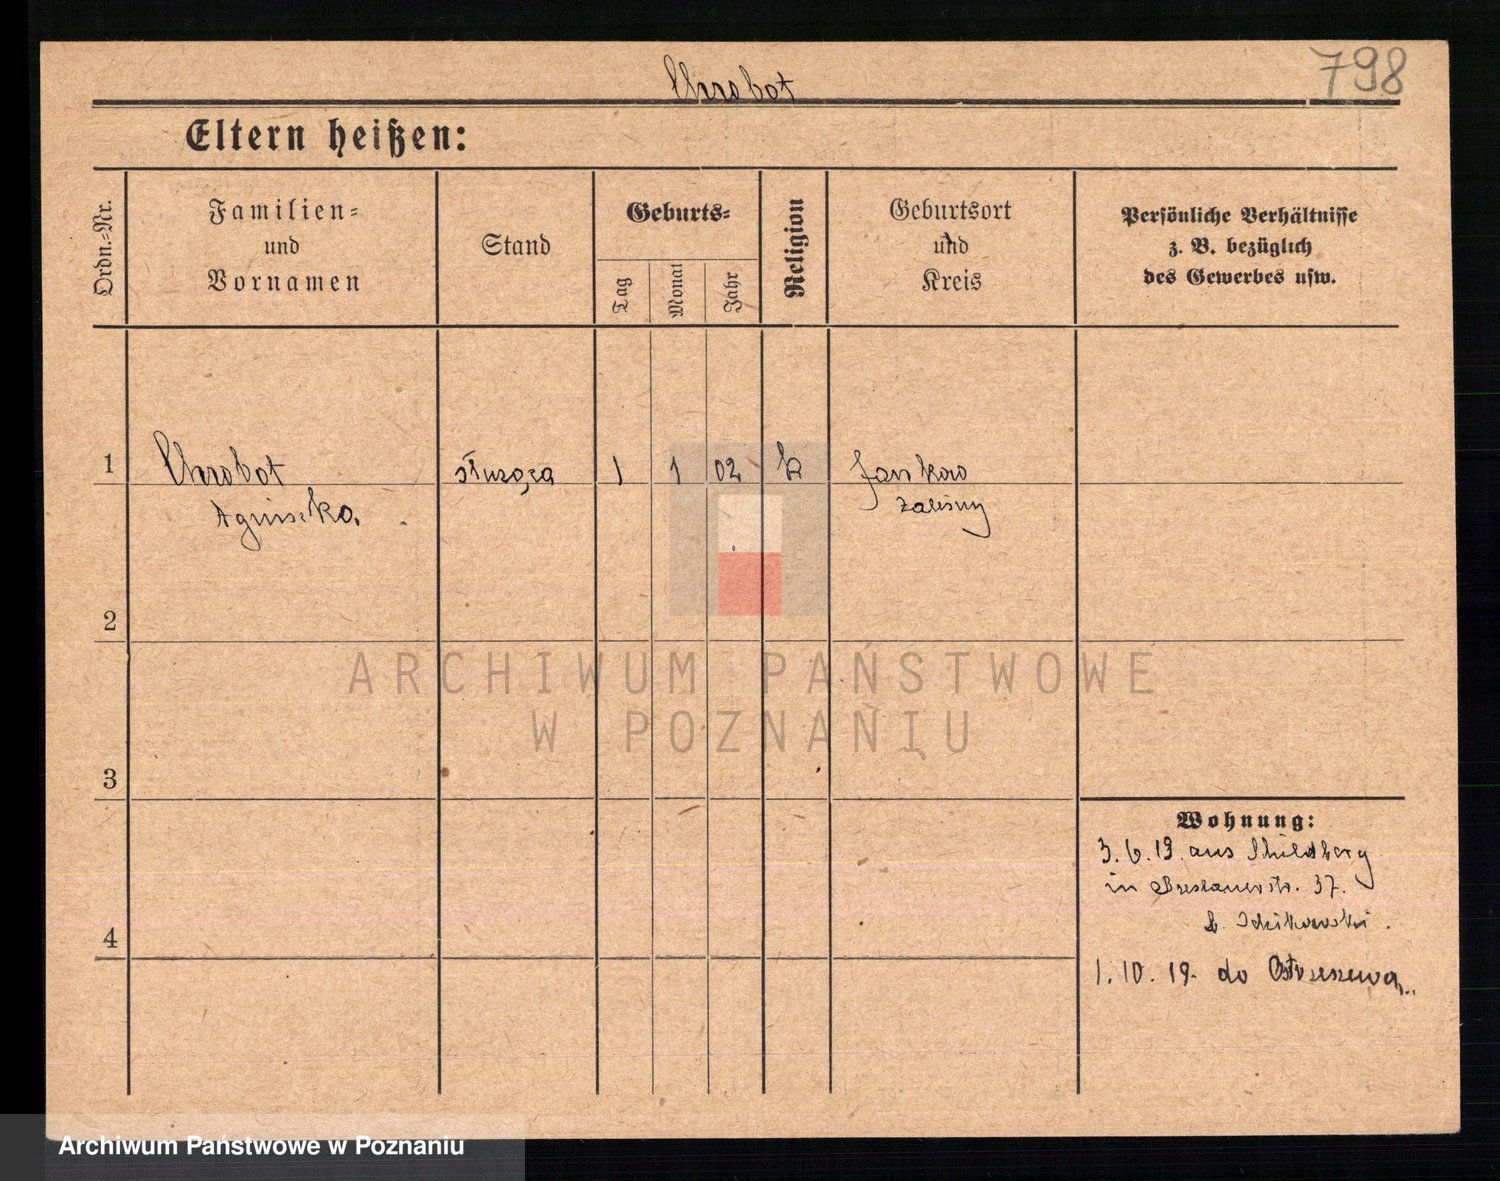 Chrobot
798
Eltern heißen:
Ordn.=Nr.
Familien=
und
Vornamen
Stand
Geburts=
Tag
Monat
Jahr
Religion
Geburtsort
und
Kreis
Persönliche Verhältnisse
z. B. bezüglich
des Gewerbes usw.
1
Chrobot
służąca
1
1
02
k
Jankowo
Agniszka.
zaleśny
2
3
4
Wohnung:
3.6.19. aus Schildberg
in Breslauerstr. 37.
b.
1.10.19. do Ostrzeszowa
ARCHIWUM PAŃSTWOWE
W POZNANIU
Archiwum Państwowe w Poznaniu